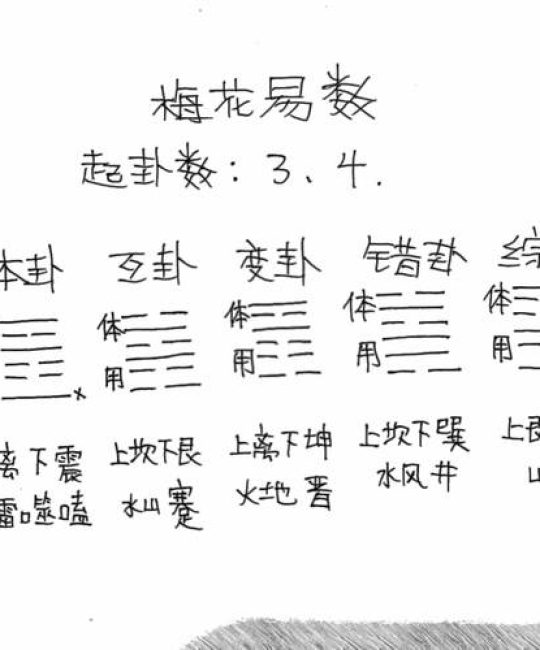 梅花易数
起卦数：3、4.
本卦 互卦 变卦 错卦 综
体 体 体 体
用 用 用 用
离下震 上坎下艮 上离下坤 上坎下巽 上艮
雷噬嗑 水山蹇 火地晋 水风井 山